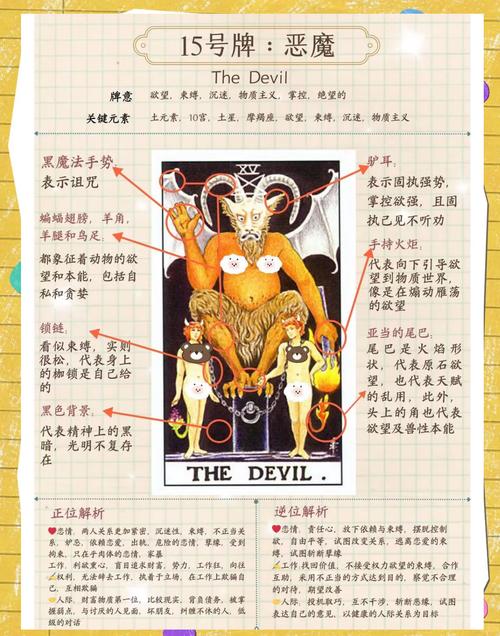 15号牌：恶魔
The Devil
牌意 欲望，束缚，沉迷，物质主义，掌控，绝望的
关键元素 土元素，10宫，土星，摩羯座，欲望，束缚，沉迷，物质主义
黑魔法手势：
表示诅咒
蝙蝠翅膀，羊角，
羊腿和鸟足：
都象征着动物的欲
望和本能，包括自
私和贪婪
锁链：
看似束缚，实则
很松，代表身上
的枷锁是自己给
的
黑色背景：
代表精神上的黑
暗，光明不复存
在
XV
THE DEVIL.
驴耳：
表示固执强势，
掌控欲强，且固
执己见不听劝
手持火炬：
代表向下引导欲
望到物质世界，
像是在煽动雁荡
的欲望
亚当的尾巴：
尾巴是火焰形
状，代表原石欲
望，也代表天赋
的乱用，此外，
头上的角也代表
欲望及兽性本能
正位解析
恋情，两人关系更加紧密，沉迷性，束缚，不正当关
系，妒忌，依赖恋爱，出轨，危险的恋情，孽缘，受到
拘束，只在乎肉体的恋情，家暴
工作，利欲熏心，盲目追求财富，势力，工作狂，向往
权利，无法辞去工作，执着于立场，在工作上欺骗自
己，互相欺骗
人际，财富物质第一位，比较现实，背负债务，被掌
握弱点，与讨厌的人见面，坏朋友，纠缠不休的人，低
级的对话
逆位解析
恋情，责任心，放下依赖与束缚，摆脱控制
欲，自由平等，试图改变关系，逃离恋爱的束
缚，试图斩断孽缘
工作 找回价值，不接受权力欲望的束缚，合作
互助，采用不正当的方式达到目的，察觉不合理
的对待，期望改善
人际，投机取巧，互不干涉，斩断恶缘，试图
表达自己的意见，以健康的人际关系为目标